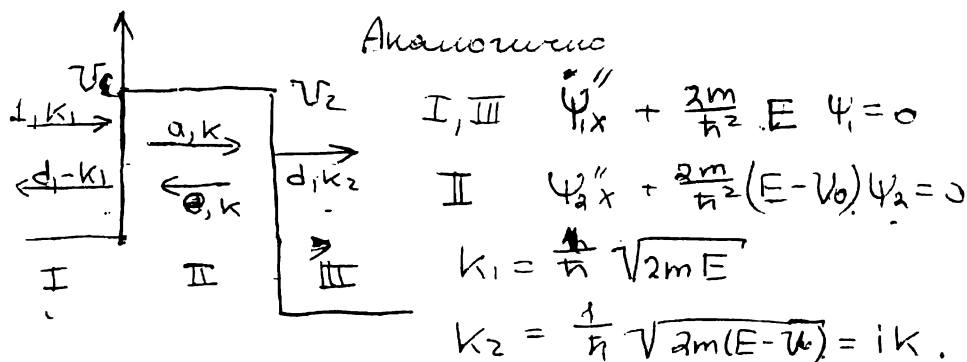 Аналогично
V₀ V₂
1, k₁ a, k
d, -k₁ e, k d, k₂
I II III
I, III Ψ₁″ₓ + 2m/ħ² E Ψ₁ = 0
II Ψ₂″ₓ + 2m/ħ² (E - V₀) Ψ₂ = 0
k₁ = 1/ħ √2mE
k₂ = 1/ħ √2m(E - V₀) = i k.